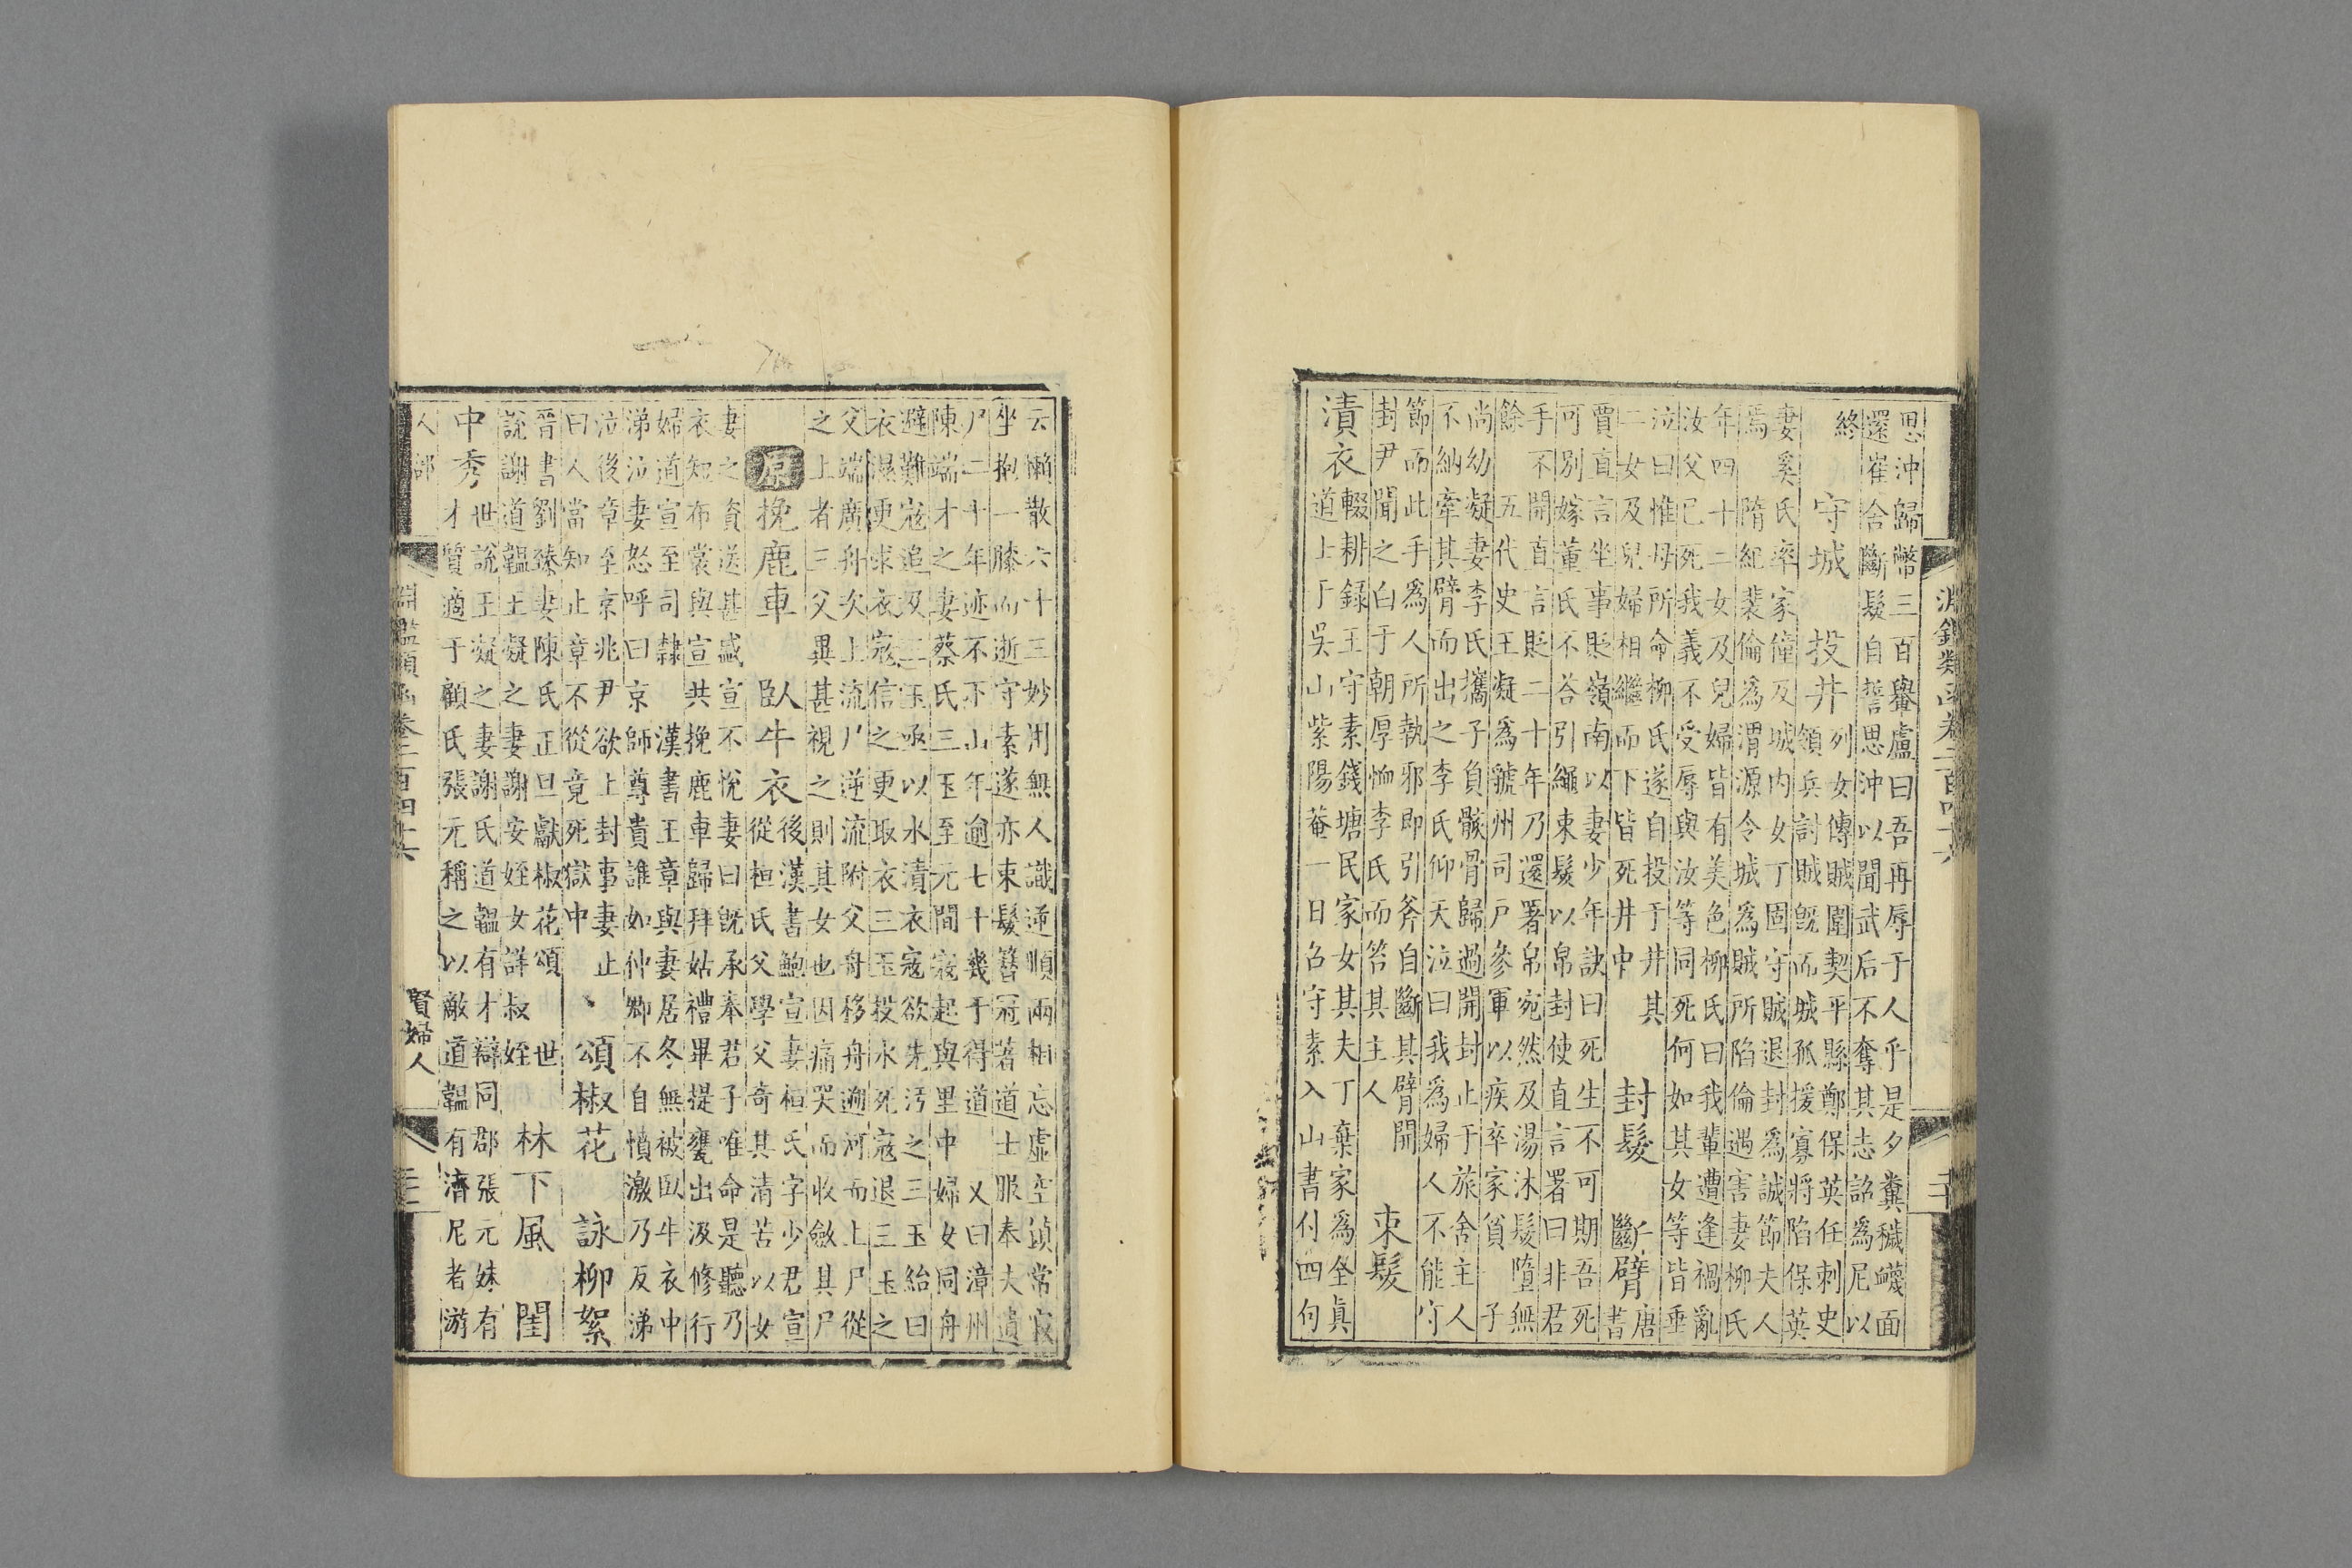 思沖歸幣三百轝盧曰吾再辱于人乎是夕糞穢衊面
還崔舍斷髮自誓思沖以聞武后不奪其志詔爲尼以
終
守城
投井
列女傳賊圍契平縣鄭保英任刺史
領兵討賊旣而城孤援寡將陷保英
妻奚氏率家僮及城内女丁固守賊退封爲誠節夫人
焉
隋紀裴倫爲渭源令城爲賊所陷倫遇害妻柳氏
年四十二女及兒婦皆有美色柳氏曰我輩遭逢禍亂
汝父已死我義不受辱與汝等同死何如其女等皆垂
泣曰惟母所命柳氏遂自投于井其
二女及兒婦相繼而下皆死井中
封髮
斷臂
唐書
賈直言坐事貶嶺南以妻少年訣曰死生不可期吾死
可別嫁董氏不答引繩束髮以帛封使直言署曰非君
手不開直言貶二十年乃還署帛宛然及湯沐髮墮無
餘
五代史王凝爲虢州司戶參軍以疾卒家貧子
尚幼凝妻李氏攜子負骸骨歸過開封止于旅舍主人
不納牽其臂而出之李氏仰天泣曰我爲婦人不能守
節而此手爲人所執邪即引斧自斷其臂開
封尹聞之白于朝厚恤李氏而笞其主人
束髮
漬衣
輟耕録王守素錢塘民家女其夫丁棄家爲全眞
道士于吳山紫陽菴一日召守素入山書付四句
淵鑑類函卷二百四十六
云懶散六十三妙用無人識逆順兩相忘虛空鎮常寂
坐抱一膝而逝守素遂亦束髮簪冠著道士服奉夫遺
尸二十年迹不下山年逾七十幾于得道
又曰漳州
陳端才之妻蔡氏三玉至元間寇起與里中婦女同舟
避難寇追及三玉亟以水漬衣寇欲先汚之三玉紿曰
衣濕更求衣寇信之更取衣三玉投水死寇退三玉之
父端廣舟次上流尸逆流附父舟移舟遡河而上尸從
之上者三父異甚視之則其女也因痛哭而收斂其尸
原
挽鹿車
臥牛衣
後漢書鮑宣妻桓氏字少君宣
從桓氏父學父奇其清苦以女
妻之資送甚盛宣不悅妻曰旣承奉君子唯命是聽乃
衣短布裳與宣共挽鹿車歸拜姑禮畢提甕出汲修行
婦道宣至司隸
漢書王章與妻居冬無被臥牛衣中
涕泣妻怒呼曰京師尊貴誰如仲卿不自憤激乃反涕
泣後章至京兆尹欲上封事妻止
曰人當知止章不從竟死獄中
頌椒花
詠柳絮
晉書劉臻妻陳氏正旦獻椒花頌
世
說謝道韞王凝之妻謝安姪女詳叔姪
林下風
閨
中秀
世說王凝之妻謝氏道韞有才辯同郡張元妹有
才質適于顧氏張元稱之以敵道韞有濟尼者游
人部
淵鑑類函卷二百四十六
賢婦人